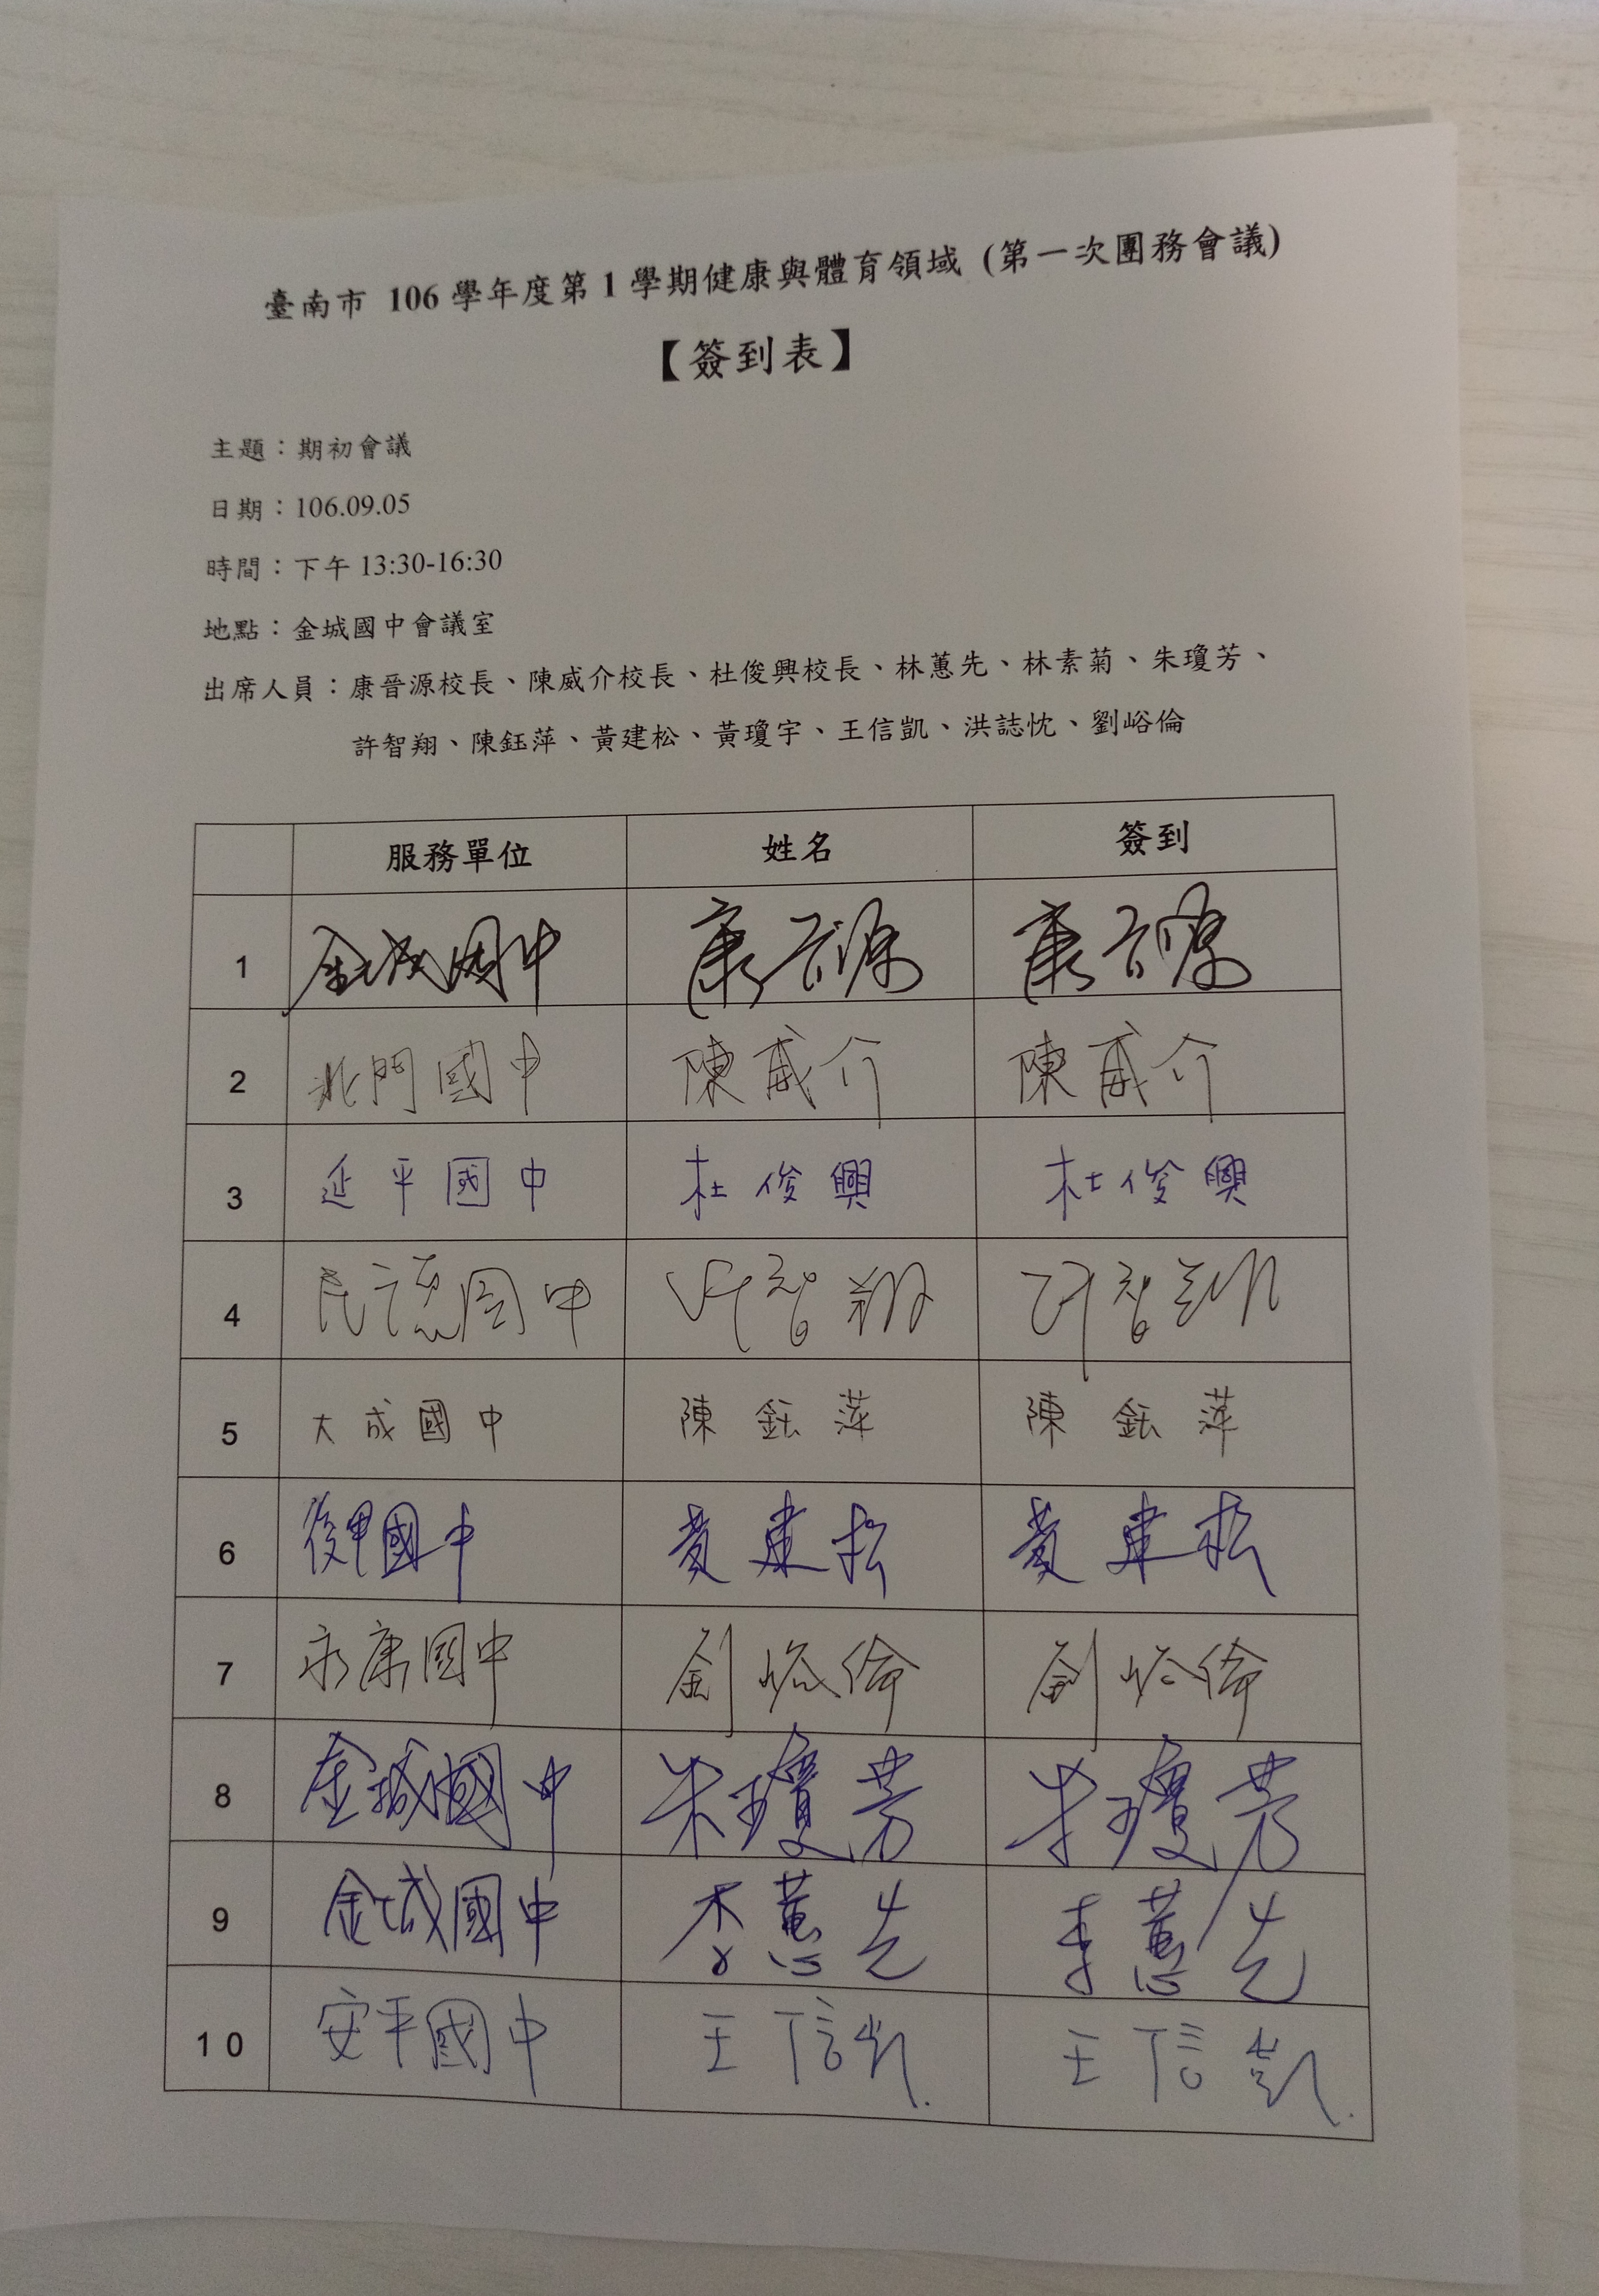 臺南市 106 學年度第 1 學期健康與體育領域 (第一次團務會議)
【簽到表】
主題：期初會議
日期：106.09.05
時間：下午 13:30-16:30
地點：金城國中會議室
出席人員：康晉源校長、陳威介校長、杜俊興校長、林蕙先、林素菊、朱瓊芳、
許智翔、陳鈺萍、黃建松、黃瓊宇、王信凱、洪誌忱、劉峪倫
服務單位 姓名 簽到
1 金城國中 康晉源 康晉源
2 北門國中 陳威介 陳威介
3 延平國中 杜俊興 杜俊興
4 民德國中 許智翔 許智翔
5 大成國中 陳鈺萍 陳鈺萍
6 後甲國中 黃建松 黃建松
7 永康國中 劉峪倫 劉峪倫
8 金城國中 朱瓊芳 朱瓊芳
9 金城國中 李蕙先 李蕙先
10 安平國中 王信凱 王信凱